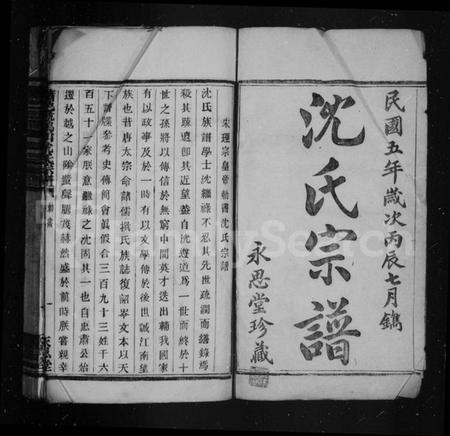 民國五年歲次丙辰七月鐫
沈氏宗譜
永思堂珍藏
宋理宗皇帝勅書沈氏宗譜
沈氏族譜學士沈繼祿不忍其先世疏漏而緒錄焉
殺其疏遠卽其近望蓋自沈遵道爲一世而終於十
世之孫將以傳信於無窮中間英才迭出輔我國家
有以政事及於一時有以文學傳於後世誠江南望
族也昔唐太宗命諸儒撰氏族誌復詔岑文本以天
下譜牒參考史傳簡會眞假合三百九十三姓千六
百五十一家朕意繼祿之沈固其一也自忠肅公始
遷於越之山陰蜚聲騰茂赫然盛於前時朕嘗親幸
FamilySearch